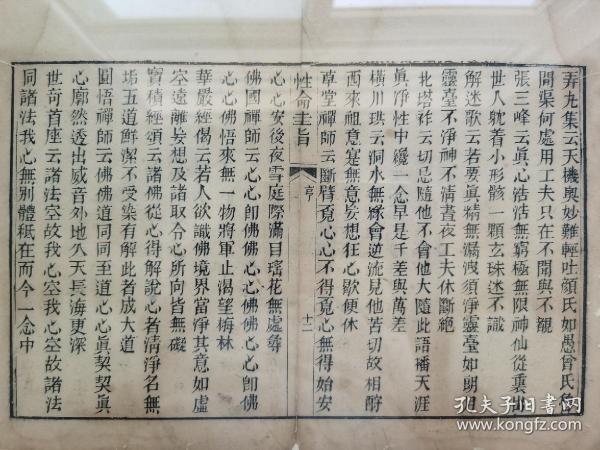 弄丸集云天機奧妙難輕吐顏氏如愚曾氏魯
問渠何處用工夫只在不聞與不覩
張三峰云眞心浩浩無窮極無限神仙從裏出
世人躭着小形骸一顆玄珠迷不識
解迷歌云若要眞精無漏洩須淨靈臺如朗月
靈臺不淨神不清晝夜工夫休斷絕
北塔祚云切忌隨他不會他大隨此語播天涯
眞淨性中纔一念早是千差與萬差
橫川珙云洞水無緣會逆流見他苦切故相酧
西來祖意寔無意妄想狂心歇便休
草堂禪師云斷臂覓心心不得覓心無得始安
性命圭旨 亨 十二
心心安後夜雪庭際滿目瑤花無處尋
佛國禪師云心心卽佛佛心心佛佛心心卽佛
心心佛悟來無一物將軍止渴望梅林
華嚴經偈云若人欲識佛境界當淨其意如虛
空遠離妄想及諸取令心所向皆無礙
寶積經頌云諸佛從心得解脫心者清淨名無
垢五道鮮潔不受染有解此者成大道
圓悟禪師云佛佛道同同至道心心眞契契眞
心廓然透出威音外地久天長海更深
世奇首座云諸法空故我心空我心空故諸法
同諸法我心無別體秪在而今一念中
孔夫子旧书网
www.kongfz.com